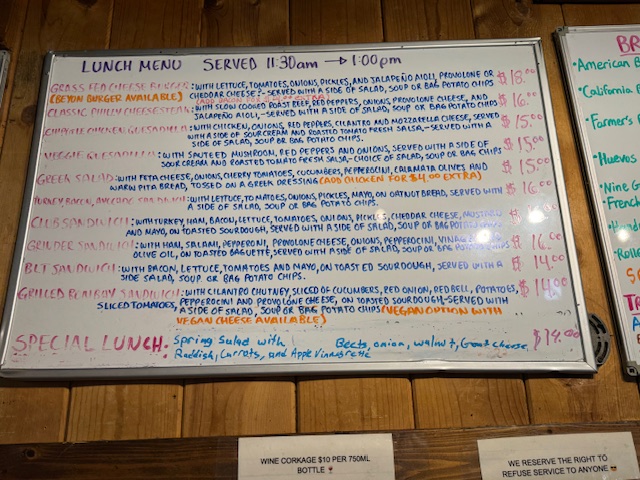 LUNCH MENU SERVED 11:30am → 1:00pm
GRASS FED CHEESE BURGER: WITH LETTUCE, TOMATOES, ONIONS, PICKLES, AND JALAPEÑO AIOLI, PROVOLONE OR $18.00
(BEYON BURGER AVAILABLE) CHEDDAR CHEESE - SERVED WITH A SIDE OF SALAD, SOUP OR BAG POTATO CHIPS
(ADD BACON FOR EXTRA)
CLASSIC PHILLY CHEESESTEAK: WITH SLOW COOKED ROAST BEEF, RED PEPPERS, ONIONS, PROVOLONE CHEESE, AND $16.
JALAPEÑO AIOLI, - SERVED WITH A SIDE OF SALAD, SOUP OR BAG POTATO CHIPS
CHICKEN QUESADILLA: WITH CHICKEN, ONIONS, RED PEPPERS, CILANTRO AND MOZZARELLA CHEESE, SERVED $15.00
WITH A SIDE OF SOUR CREAM AND ROASTED TOMATO FRESH SALSA, - SERVED WITH A
SIDE OF SALAD, SOUP OR BAG POTATO CHIPS.
VEGGIE QUESADILLA: WITH SAUTEED MUSHROOM, RED PEPPERS AND ONIONS, SERVED WITH A SIDE OF $15.00
SOUR CREAM AND ROASTED TOMATO FRESH SALSA - CHOICE OF SALAD, SOUP OR BAG CHIPS
GREEK SALAD: WITH FETA CHEESE, ONIONS, CHERRY TOMATOES, CUCUMBERS, PEPPEROCINI, CALAMATA OLIVES AND $15.00
WARM PITA BREAD, TOSSED ON A GREEK DRESSING (ADD CHICKEN FOR $4.00 EXTRA)
TURKEY BACON, AVOCADO SANDWICH: WITH LETTUCE, TOMATOES, ONIONS, PICKLES, MAYO, ON OATNUT BREAD, SERVED WITH $16.00
A SIDE OF SALAD, SOUP OR BAG POTATO CHIPS.
CLUB SANDWICH: WITH TURKEY, HAM, BACON, LETTUCE, TOMATOES, ONIONS, PICKLES, CHEDDAR CHEESE, MUSTARD
AND MAYO, ON TOASTED SOURDOUGH, SERVED WITH A SIDE OF SALAD, SOUP OR BAG POTATO CHIPS
GRINDER SANDWICH: WITH HAM, SALAMI, PEPPERONI, PROVOLONE CHEESE, ONIONS, PEPPEROCINI, VINAGER $16.00
OLIVE OIL, ON TOASTED BAGUETTE, SERVED WITH A SIDE OF SALAD, SOUP OR BAG POTATO CHIPS
BLT SANDWICH: WITH BACON, LETTUCE, TOMATOES AND MAYO, ON TOASTED SOURDOUGH, SERVED WITH A $14.00
SIDE SALAD, SOUP OR BAG POTATO CHIPS.
GRILLED BOMBAY SANDWICH: WITH CILANTRO CHUTNEY, SLICED OF CUCUMBERS, RED ONION, RED BELL, POTATOES, $14.00
SLICED TOMATOES, PEPPERONCINI AND PROVOLONE CHEESE, ON TOASTED SOURDOUGH - SERVED WITH
A SIDE OF SALAD, SOUP OR BAG POTATO CHIPS (VEGAN OPTION WITH
VEGAN CHEESE AVAILABLE)
SPECIAL LUNCH: Spring Salad with Beets, onion, walnut, Goat cheese, $14.00
Raddish, Carrots, and Apple Vinaigrette
BR
• American B
• California B
• Farmer's
• Huevos
• Nine G
• French
WINE CORKAGE $10 PER 750ML
BOTTLE 🍷
WE RESERVE THE RIGHT TO
REFUSE SERVICE TO ANYONE 😎